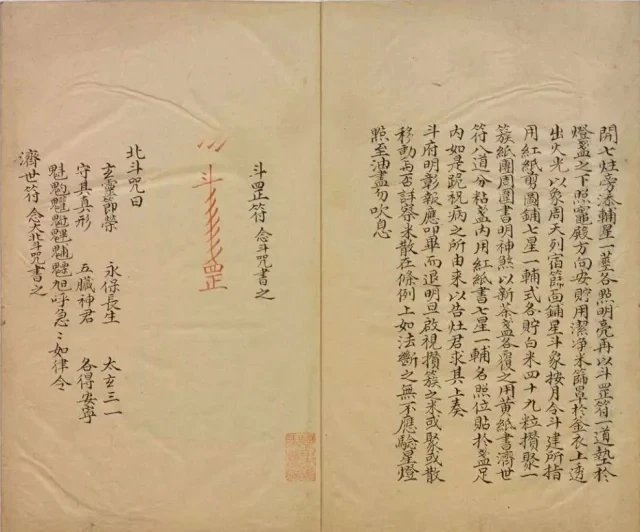 開七炷旁添輔星一盞各照明亮再以斗罡符一道墊於
燈盞之下照竈殿方向安貯用潔淨米篩罩於金衣上透
出火光以象周天列宿篩面鋪星斗象按月令斗建所指
用紅紙剪圖鋪七星一輔式各貯白米四十九粒攢聚一
簇紙圈周圍書明神煞以新茶盞各覆之用黃紙書濟世
符八道分粘盞內用紅紙書七星一輔名照位貼於盞足
內如是跪祝病之所由來以告灶君求其上奏
斗府明彰報應叩畢而退明旦啟視攢簇之米或聚或散
移動與否詳察米散在條例上如法斷之無不應驗星燈
點至油盡勿吹息
斗罡符 念斗咒書之
斗罡
北斗咒曰
玄靈節榮 永保長生 太玄三一
守其真形 五臟神君 各得安寧
魁𩲃魓䰢魒 旭呼急〻如律令
濟世符 念大北斗咒書之